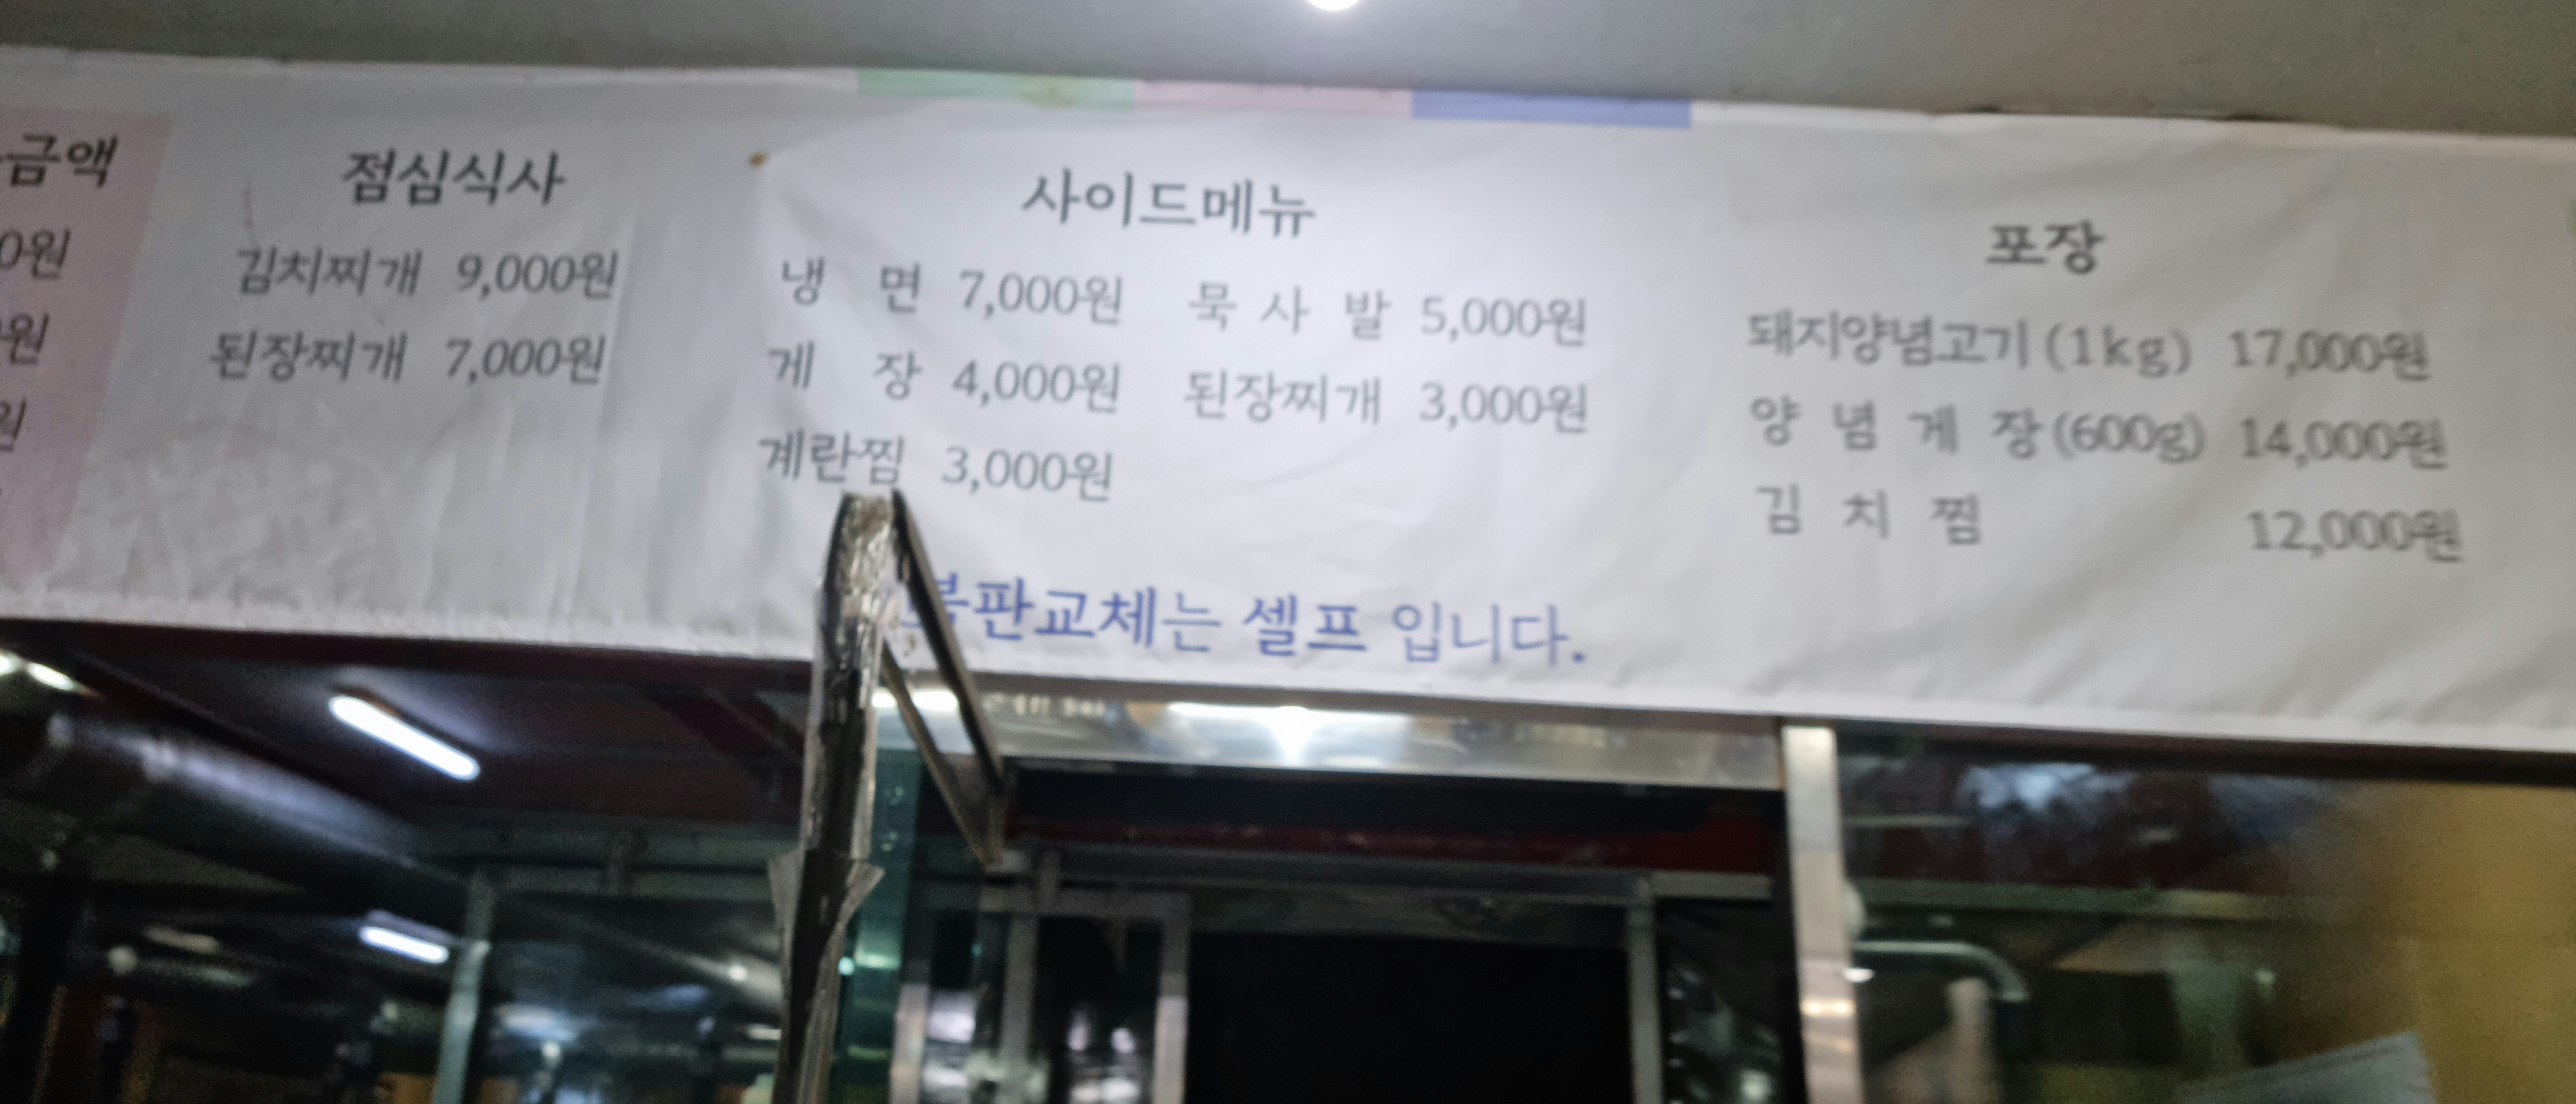 금액
0원
원
원
점심식사
김치찌개 9,000원
된장찌개 7,000원
사이드메뉴
냉 면 7,000원 묵 사 발 5,000원
게 장 4,000원 된장찌개 3,000원
계란찜 3,000원
포장
돼지양념고기 (1kg) 17,000원
양 념 게 장 (600g) 14,000원
김 치 찜 12,000원
불판교체는 셀프 입니다.